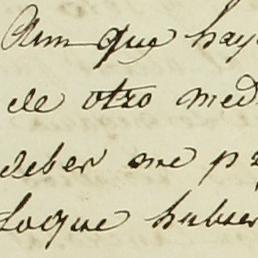 Aunque hay
de otro med
deber me pr
loque hubier